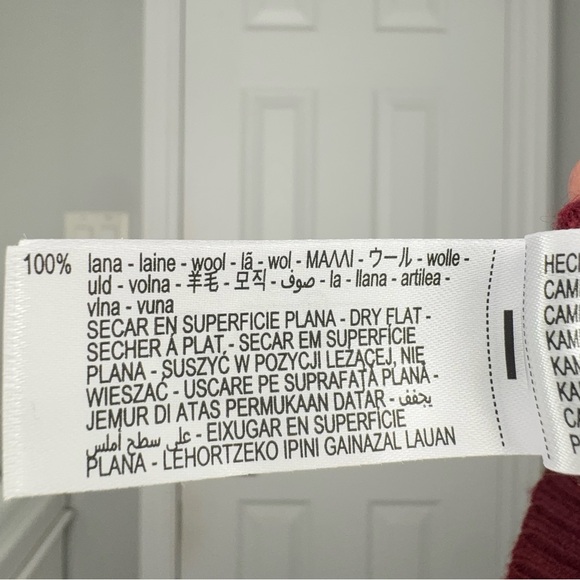 100% lana - laine - wool - lã - wol - ΜΑΛΛΙ - ウール - wolle -
uld - volna - 羊毛 - 모직 - صوف - la - llana - artilea -
vlna - vuna
SECAR EN SUPERFICIE PLANA - DRY FLAT -
SECHER À PLAT - SECAR EM SUPERFÍCIE
PLANA - SUSZYĆ W POZYCJI LEŻĄCEJ, NIE
WIESZAĆ - USCARE PE SUPRAFAŢĂ PLANĂ -
JEMUR DI ATAS PERMUKAAN DATAR - يجفف
على سطح أملس - EIXUGAR EN SUPERFÍCIE
PLANA - LEHORTZEKO IPINI GAINAZAL LAUAN